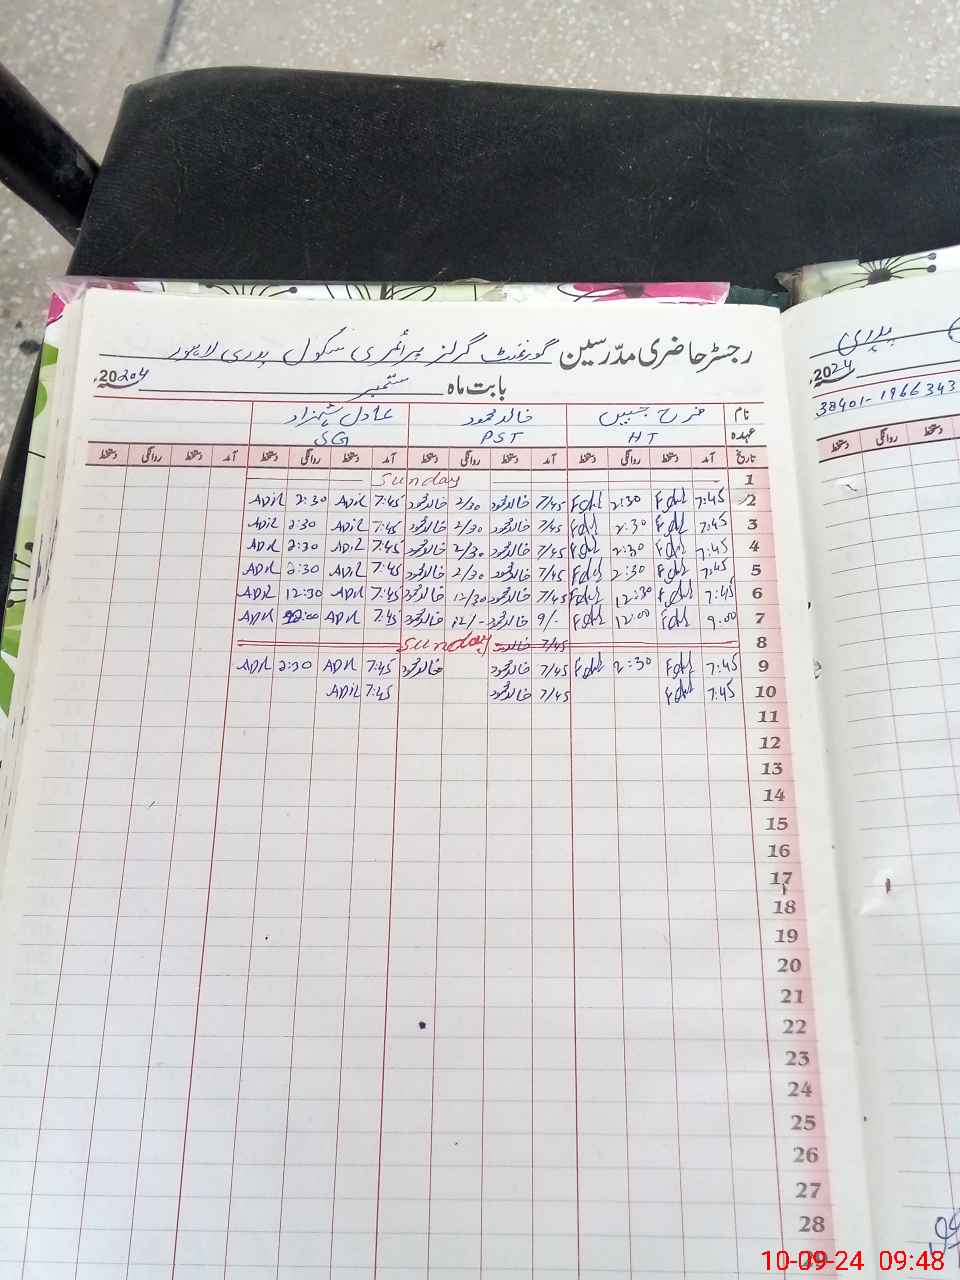 رجسٹر حاضری مدرسین گورنمنٹ گرلز پرائمری سکول پدری لاہور
بابت ماہ ستمبر 2024ء
نام فرح جبیں خالد محمود عادل شہزاد
عہدہ HT PST SG
تاریخ آمد دستخط روانگی دستخط آمد دستخط روانگی دستخط آمد دستخط روانگی دستخط آمد دستخط روانگی دستخط
1 Sunday
2 7:45 2:30 7/45 خالد محمود 2/30 خالد محمود 7:45 ADiL 2:30 ADiL
3 7:45 2:30 7/45 خالد محمود 2/30 خالد محمود 7:45 ADiL 2:30 ADiL
4 7:45 2:30 7/45 خالد محمود 2/30 خالد محمود 7:45 ADiL 2:30 ADiL
5 7:45 2:30 7/45 خالد محمود 2/30 خالد محمود 7:45 ADiL 2:30 ADiL
6 7:45 12:30 7/45 خالد محمود 12/30 خالد محمود 7:45 ADiL 12:30 ADiL
7 9.00 12:00 9/- خالد محمود 12/- خالد محمود 7:45 ADiL :00 ADiL
8 7/45 خالد محمود Sunday
9 7:45 2:30 7/45 خالد محمود خالد محمود 7:45 ADiL 2:30 ADiL
10 7:45 7/45 خالد محمود 7:45 ADiL
11
12
13
14
15
16
17
18
19
20
21
22
23
24
25
26
27
28
29
پدری
2024ء
38401-1966343
دستخط روانگی دستخط
10-09-24 09:48